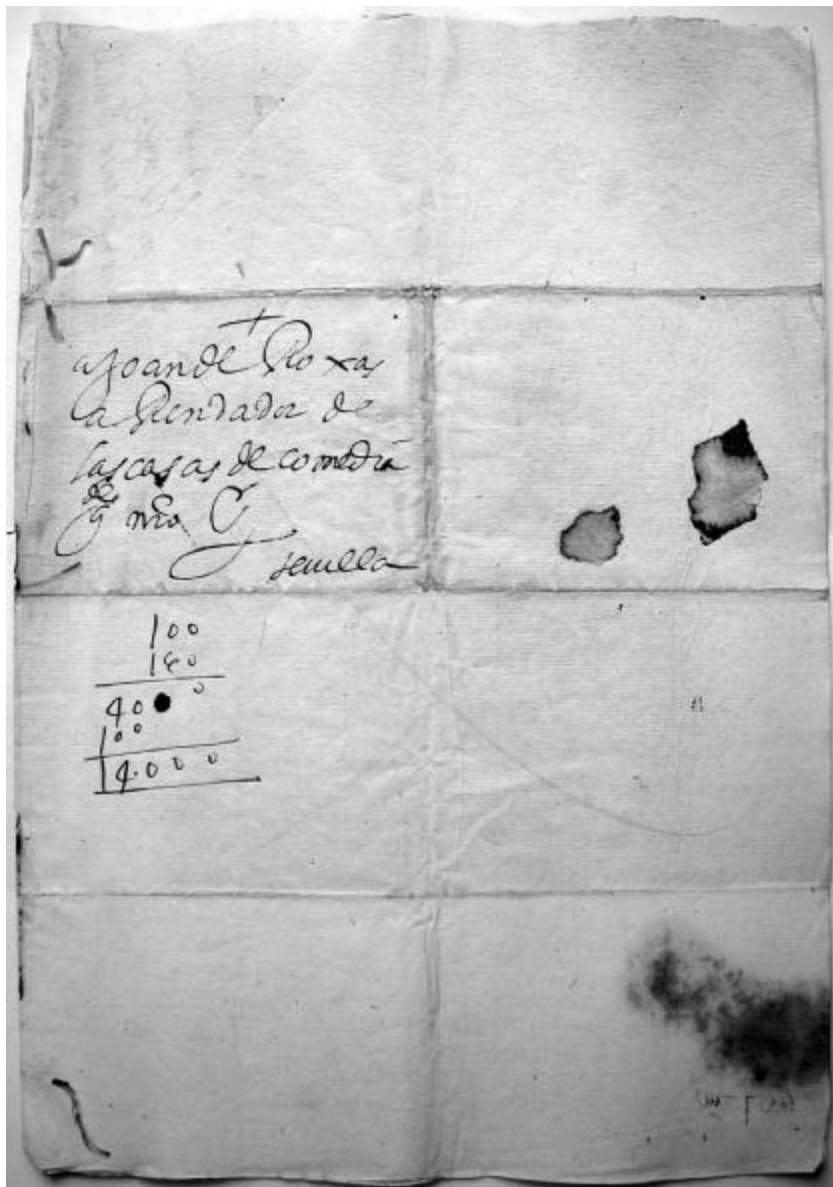 +
a Joan de Roxas
a Rendador de
las casas de comedia
q
senilla
100
140
400 0
100
14.000